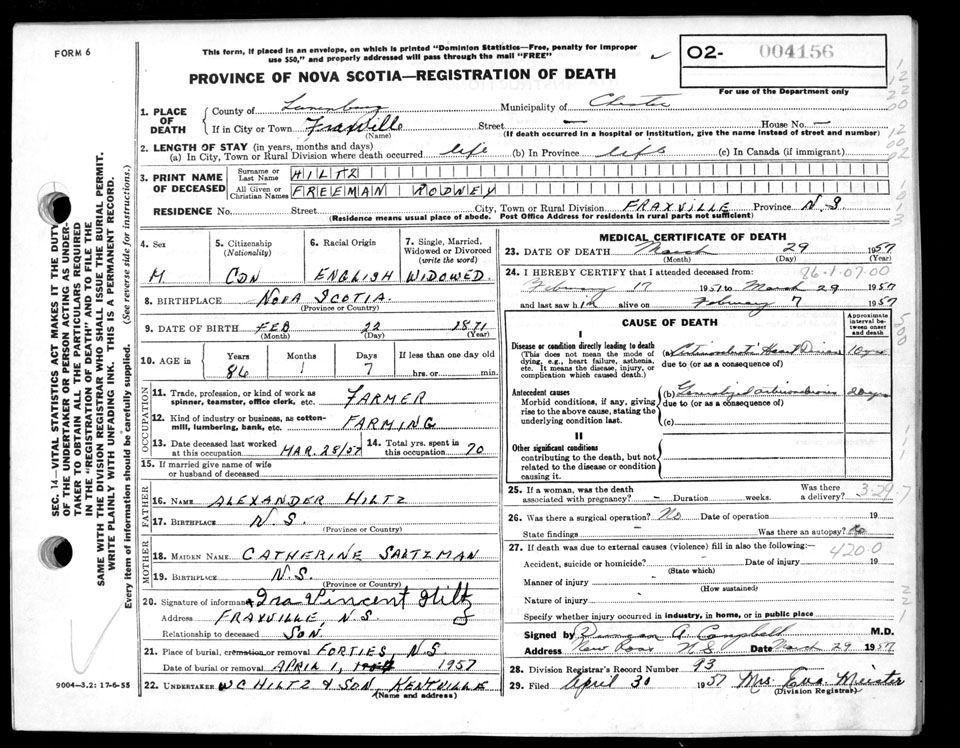 FORM 6
This form, if placed in an envelope, on which is printed "Dominion Statistics—Free, penalty for improper
use $50," and properly addressed will pass through the mail "FREE"
02- 004156
For use of the Department only
PROVINCE OF NOVA SCOTIA—REGISTRATION OF DEATH
1. PLACE OF DEATH
County of Lunenburg Municipality of Chester
If in City or Town Fraxville Street — House No. —
(Name) (If death occurred in a hospital or institution, give the name instead of street and number)
2. LENGTH OF STAY (in years, months and days)
(a) In City, Town or Rural Division where death occurred life (b) In Province life (c) In Canada (if immigrant)
3. PRINT NAME OF DECEASED
Surname or Last Name HILTZ
All Given or Christian Names FREEMAN RODNEY
RESIDENCE No. Street City, Town or Rural Division FRAXVILLE Province N.S
(Residence means usual place of abode. Post Office Address for residents in rural parts not sufficient)
4. Sex M.
5. Citizenship (Nationality) CDN
6. Racial Origin ENGLISH
7. Single, Married, Widowed or Divorced (write the word) WIDOWED.
8. BIRTHPLACE NOVA SCOTIA.
(Province or Country)
9. DATE OF BIRTH FEB 22 1871
(Month) (Day) (Year)
10. AGE in Years 86 Months 1 Days 7 If less than one day old hrs. or min.
OCCUPATION
11. Trade, profession, or kind of work as spinner, teamster, office clerk, etc. FARMER
12. Kind of industry or business, as cotton-mill, lumbering, bank, etc. FARMING
13. Date deceased last worked at this occupation MAR. 28/57
14. Total yrs. spent in this occupation 70
15. If married give name of wife or husband of deceased
FATHER
16. NAME ALEXANDER HILTZ
17. BIRTHPLACE N.S.
(Province or Country)
MOTHER
18. MAIDEN NAME CATHERINE SALTZMAN
19. BIRTHPLACE N.S.
(Province or Country)
20. Signature of informant Ira Vincent Hiltz
Address FRAXVILLE, N.S.
Relationship to deceased SON.
21. Place of burial, cremation or removal FORTIES, N.S
Date of burial or removal APRIL 1, 1957
22. UNDERTAKER W C HILTZ & SON, KENTVILLE
(Name and address)
9004—3.2: 17-6-55
MEDICAL CERTIFICATE OF DEATH
23. DATE OF DEATH March 29 1957
(Month) (Day) (Year)
24. I HEREBY CERTIFY that I attended deceased from: 86-1-07-00
February 17 1957 to March 29 1957
and last saw h alive on February 7 1957
CAUSE OF DEATH
Approximate interval between onset and death
I
Disease or condition directly leading to death
(This does not mean the mode of dying, e.g., heart failure, asthenia, etc. It means the disease, injury, or complication which caused death.)
(a) Heart Disease 10 yrs
due to (or as a consequence of)
Antecedent causes
Morbid conditions, if any, giving rise to the above cause, stating the underlying condition last.
(b) Generalized arteriosclerosis 20 yrs
due to (or as a consequence of)
(c)
II
Other significant conditions
contributing to the death, but not related to the disease or condition causing it.
25. If a woman, was the death associated with pregnancy? – Duration weeks. Was there a delivery? 3-29-7
26. Was there a surgical operation? No Date of operation 19
State findings – Was there an autopsy? No
27. If death was due to external causes (violence) fill in also the following:— 420.0
Accident, suicide or homicide? Date of injury 19
(State which)
Manner of injury
(How sustained)
Nature of injury
Specify whether injury occurred in industry, in home, or in public place
Signed by Duncan A. Campbell M.D.
Address New Ross N S Date March 29 1957
28. Division Registrar's Record Number 93
29. Filed April 30 1957 Mrs. Meister
(Division Registrar)
SEC. 14—VITAL STATISTICS ACT MAKES IT THE DUTY
OF THE UNDERTAKER OR PERSON ACTING AS UNDER-
TAKER TO OBTAIN ALL THE PARTICULARS REQUIRED
IN THE "REGISTRATION OF DEATH" AND TO FILE THE
SAME WITH THE DIVISION REGISTRAR WHO SHALL ISSUE THE BURIAL PERMIT.
WRITE PLAINLY WITH UNFADING INK. THIS IS A PERMANENT RECORD.
Every item of information should be carefully supplied. (See reverse side for instructions.)